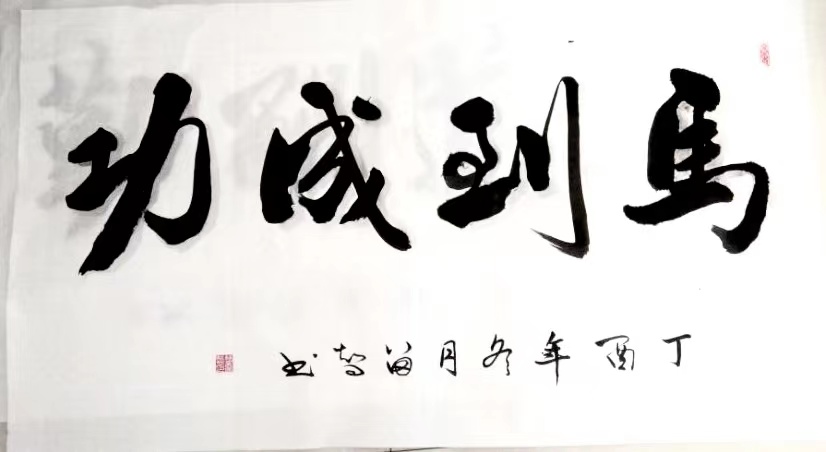 馬到成功
丁酉年冬月 智书